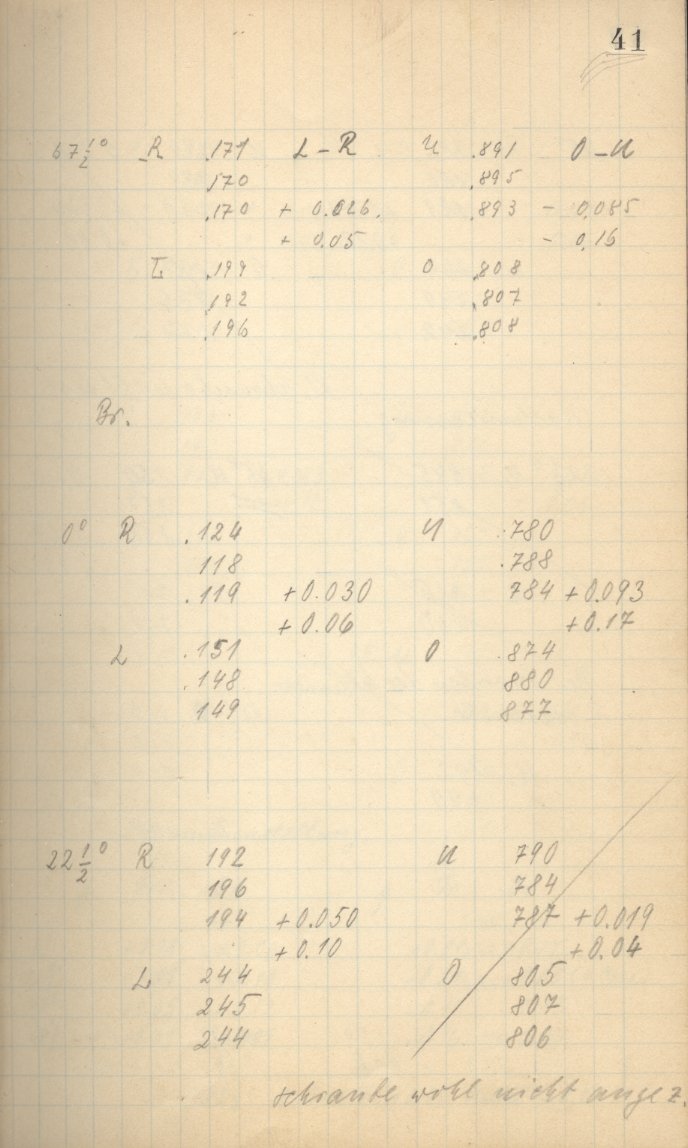 41
67½° R .171 L-R U .891 O-U
.170 .895
.170 + 0.026. .893 - 0.085
+ 0.05 - 0.16
L .199 O .808
.192 .807
.196 .808
Br.
0° R .124 U .780
118 .788
.119 +0.030 784 +0.093
+0.06 +0.17
L .151 O .874
.148 880
149 877
22½° R 192 U 790
196 784
194 +0.050 787 +0.019
+0.10 +0.04
L 244 O 805
245 807
244 806
schraube wohl nicht angez.